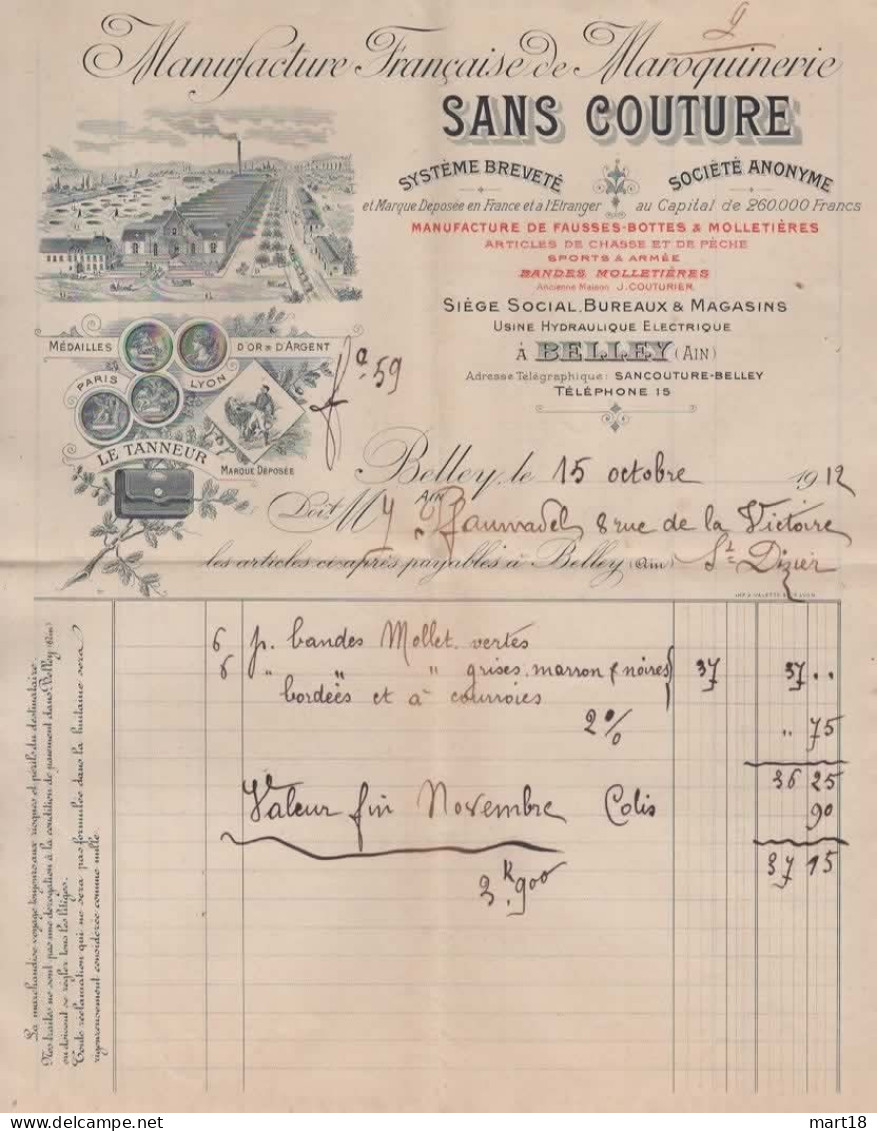 Manufacture Française de Maroquinerie
SANS COUTURE
SYSTÈME BREVETÉ
et Marque Déposée en France et à l'Etranger
SOCIÉTÉ ANONYME
au Capital de 260.000 Francs
MANUFACTURE DE FAUSSES-BOTTES & MOLLETIÈRES
ARTICLES DE CHASSE ET DE PÊCHE
SPORTS & ARMÉE
BANDES MOLLETIÈRES
Ancienne Maison J. COUTURIER
SIÈGE SOCIAL, BUREAUX & MAGASINS
USINE HYDRAULIQUE ELECTRIQUE
À BELLEY (AIN)
Adresse Télégraphique: SANCOUTURE-BELLEY
TÉLÉPHONE 15
MÉDAILLES D'OR & D'ARGENT
PARIS LYON
LE TANNEUR
MARQUE DÉPOSÉE
59
Belley, le 15 octobre 1912
Ain
Doit M 8 rue de la Victoire
les articles ci-après payables à Belley (Ain) St Dizier
6 p. bandes Mollet. vertes
6 " " " grises, marron & noires 37 37 ..
bordées et à courroies
2% " 75
36 25
Valeur fin Novembre Colis 90
37 15
3 k 900
La marchandise voyage toujours aux risques et périls du destinataire.
Nos traites ne sont pas une dérogation à la condition de paiement dans Belley (Ain)
où doivent se régler tous les litiges.
Toute réclamation qui ne sera pas formulée dans la huitaine sera
rigoureusement considérée comme nulle.
mart18